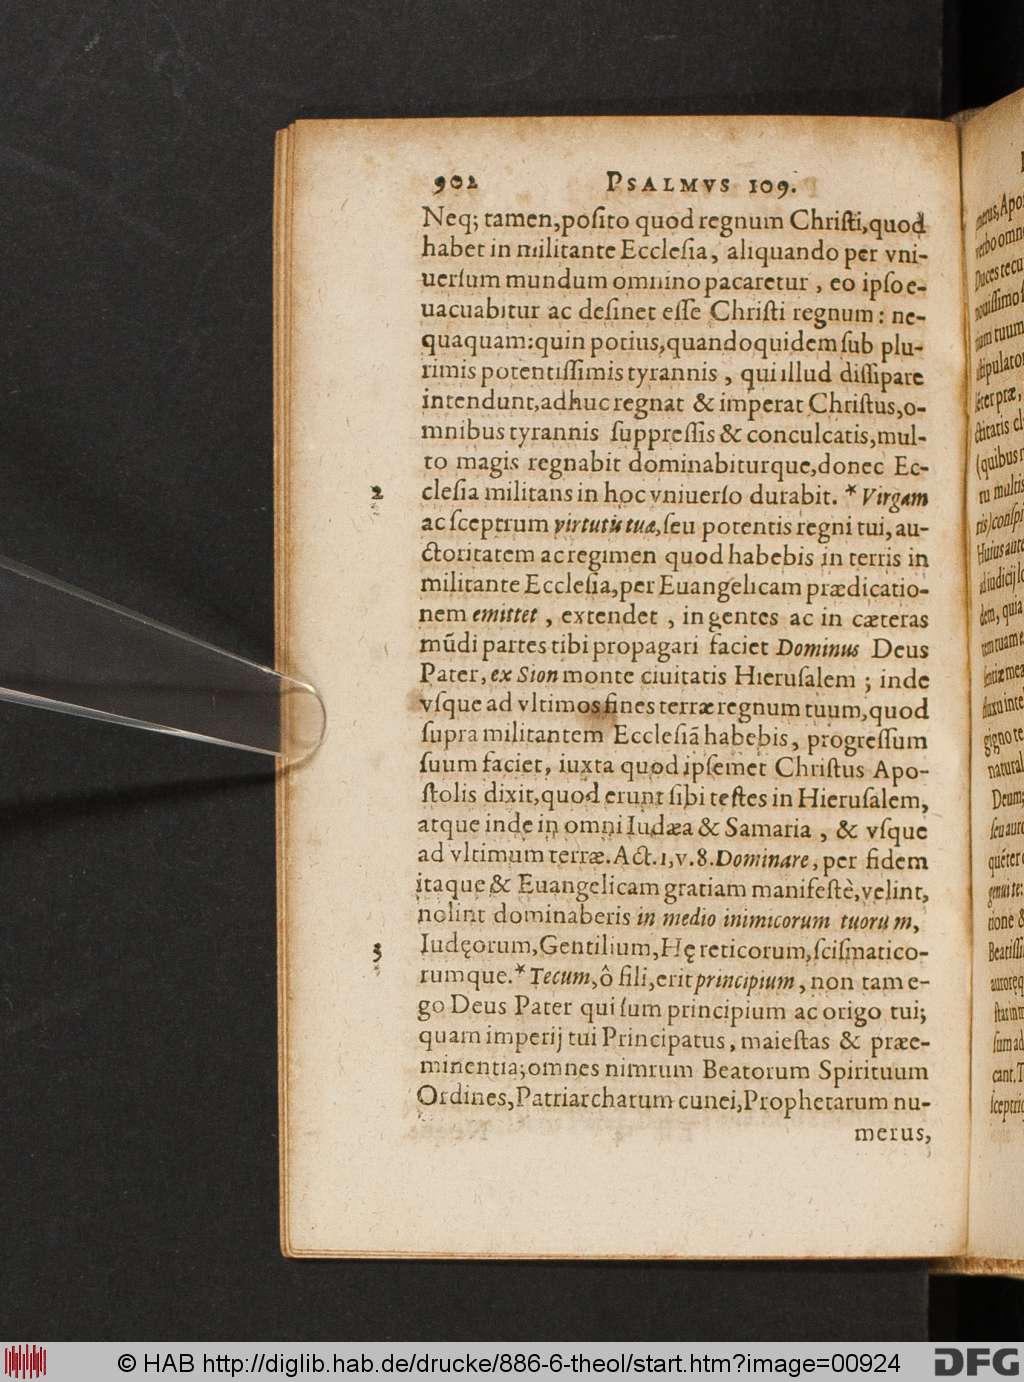 902 PSALMVS 109.
Neq; tamen, poſito quod regnum Chriſti, quod
habet in militante Eccleſia, aliquando per vni-
uerſum mundum omnino pacaretur, eo ipſo e-
uacuabitur ac deſinet eſſe Chriſti regnum: ne-
quaquam: quin potius, quandoquidem ſub plu-
rimis potentiſſimis tyrannis, qui illud diſſipare
intendunt, adhuc regnat & imperat Chriſtus, o-
mnibus tyrannis ſuppreſſis & conculcatis, mul-
to magis regnabit dominabiturque, donec Ec-
2 cleſia militans in hoc vniuerſo durabit. * Virgam
ac ſceptrum virtutis tuæ, ſeu potentis regni tui, au-
ctoritatem ac regimen quod habebis in terris in
militante Eccleſia, per Euangelicam prædicatio-
nem emittet, extendet, in gentes ac in cæteras
mũdi partes tibi propagari faciet Dominus Deus
Pater, ex Sion monte ciuitatis Hieruſalem; inde
vſque ad vltimos fines terræ regnum tuum, quod
ſupra militantem Eccleſiã habebis, progreſſum
ſuum faciet, iuxta quod ipſemet Chriſtus Apo-
ſtolis dixit, quod erunt ſibi teſtes in Hieruſalem,
atque inde in omni Iudæa & Samaria, & vſque
ad vltimum terræ. Act. 1, v. 8. Dominare, per fidem
itaque & Euangelicam gratiam manifeſtè, velint,
nolint dominaberis in medio inimicorum tuorum,
3 Iudęorum, Gentilium, Hęreticorum, ſciſmatico-
rumque. * Tecum, ô fili, erit principium, non tam e-
go Deus Pater qui ſum principium ac origo tui;
quam imperij tui Principatus, maieſtas & præe-
minentia; omnes nimrum Beatorum Spirituum
Ordines, Patriarcharum cunei, Prophetarum nu-
merus,
merus, Apo
verbo omn
Duces tecu
nouiſſimo
tium tuum
ſtipulator
(quibus
tu multis
Huius aute
ad iudicij
dem, quia
gigno te
natural
Deum;
ſeu auro
genui te:
tione &
Beatiſſi
ſum ad
cant. T
ſceptri
© HAB http://diglib.hab.de/drucke/886-6-theol/start.htm?image=00924
DFG